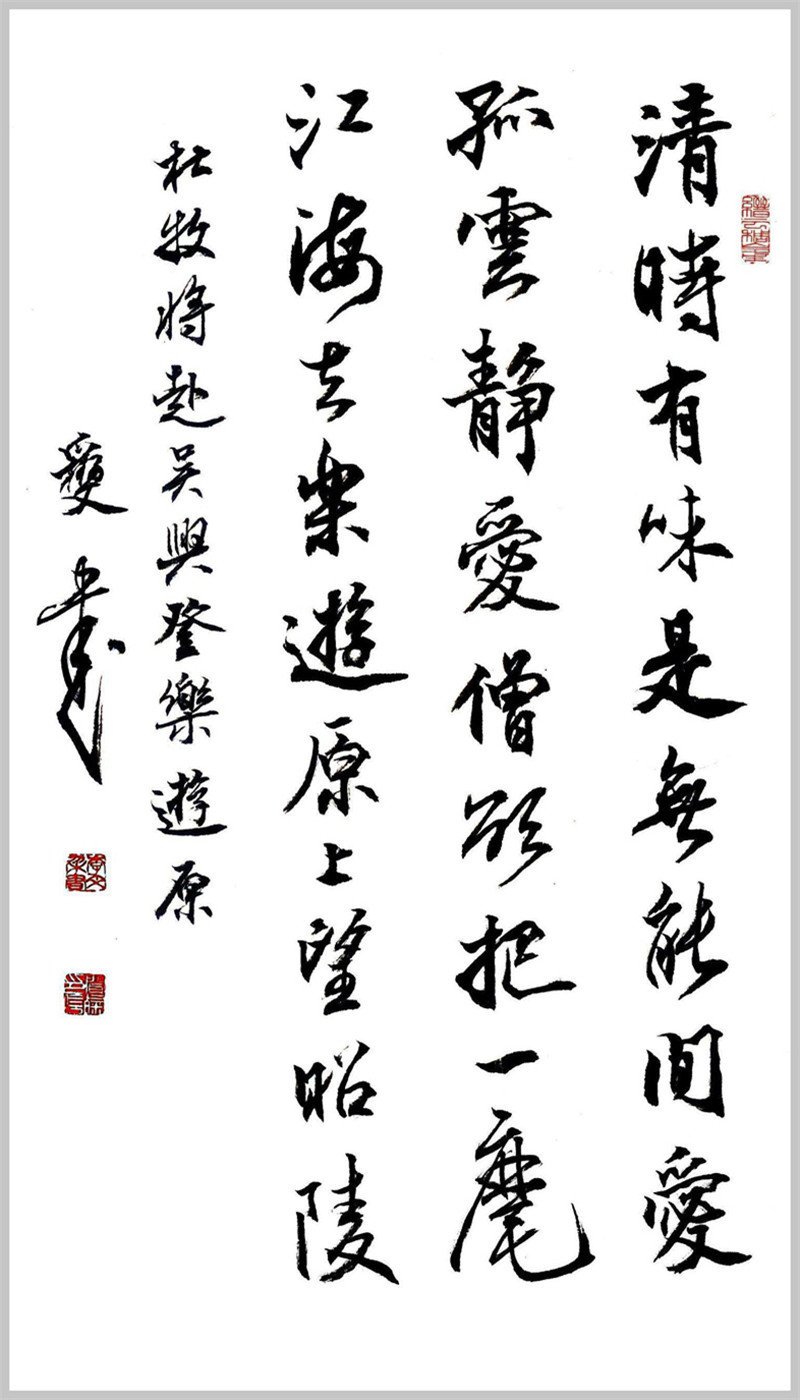 清時有味是無能間愛
孤雲靜愛僧欲把一麾
江海去樂遊原上望昭陵
杜牧將赴吳興登樂遊原